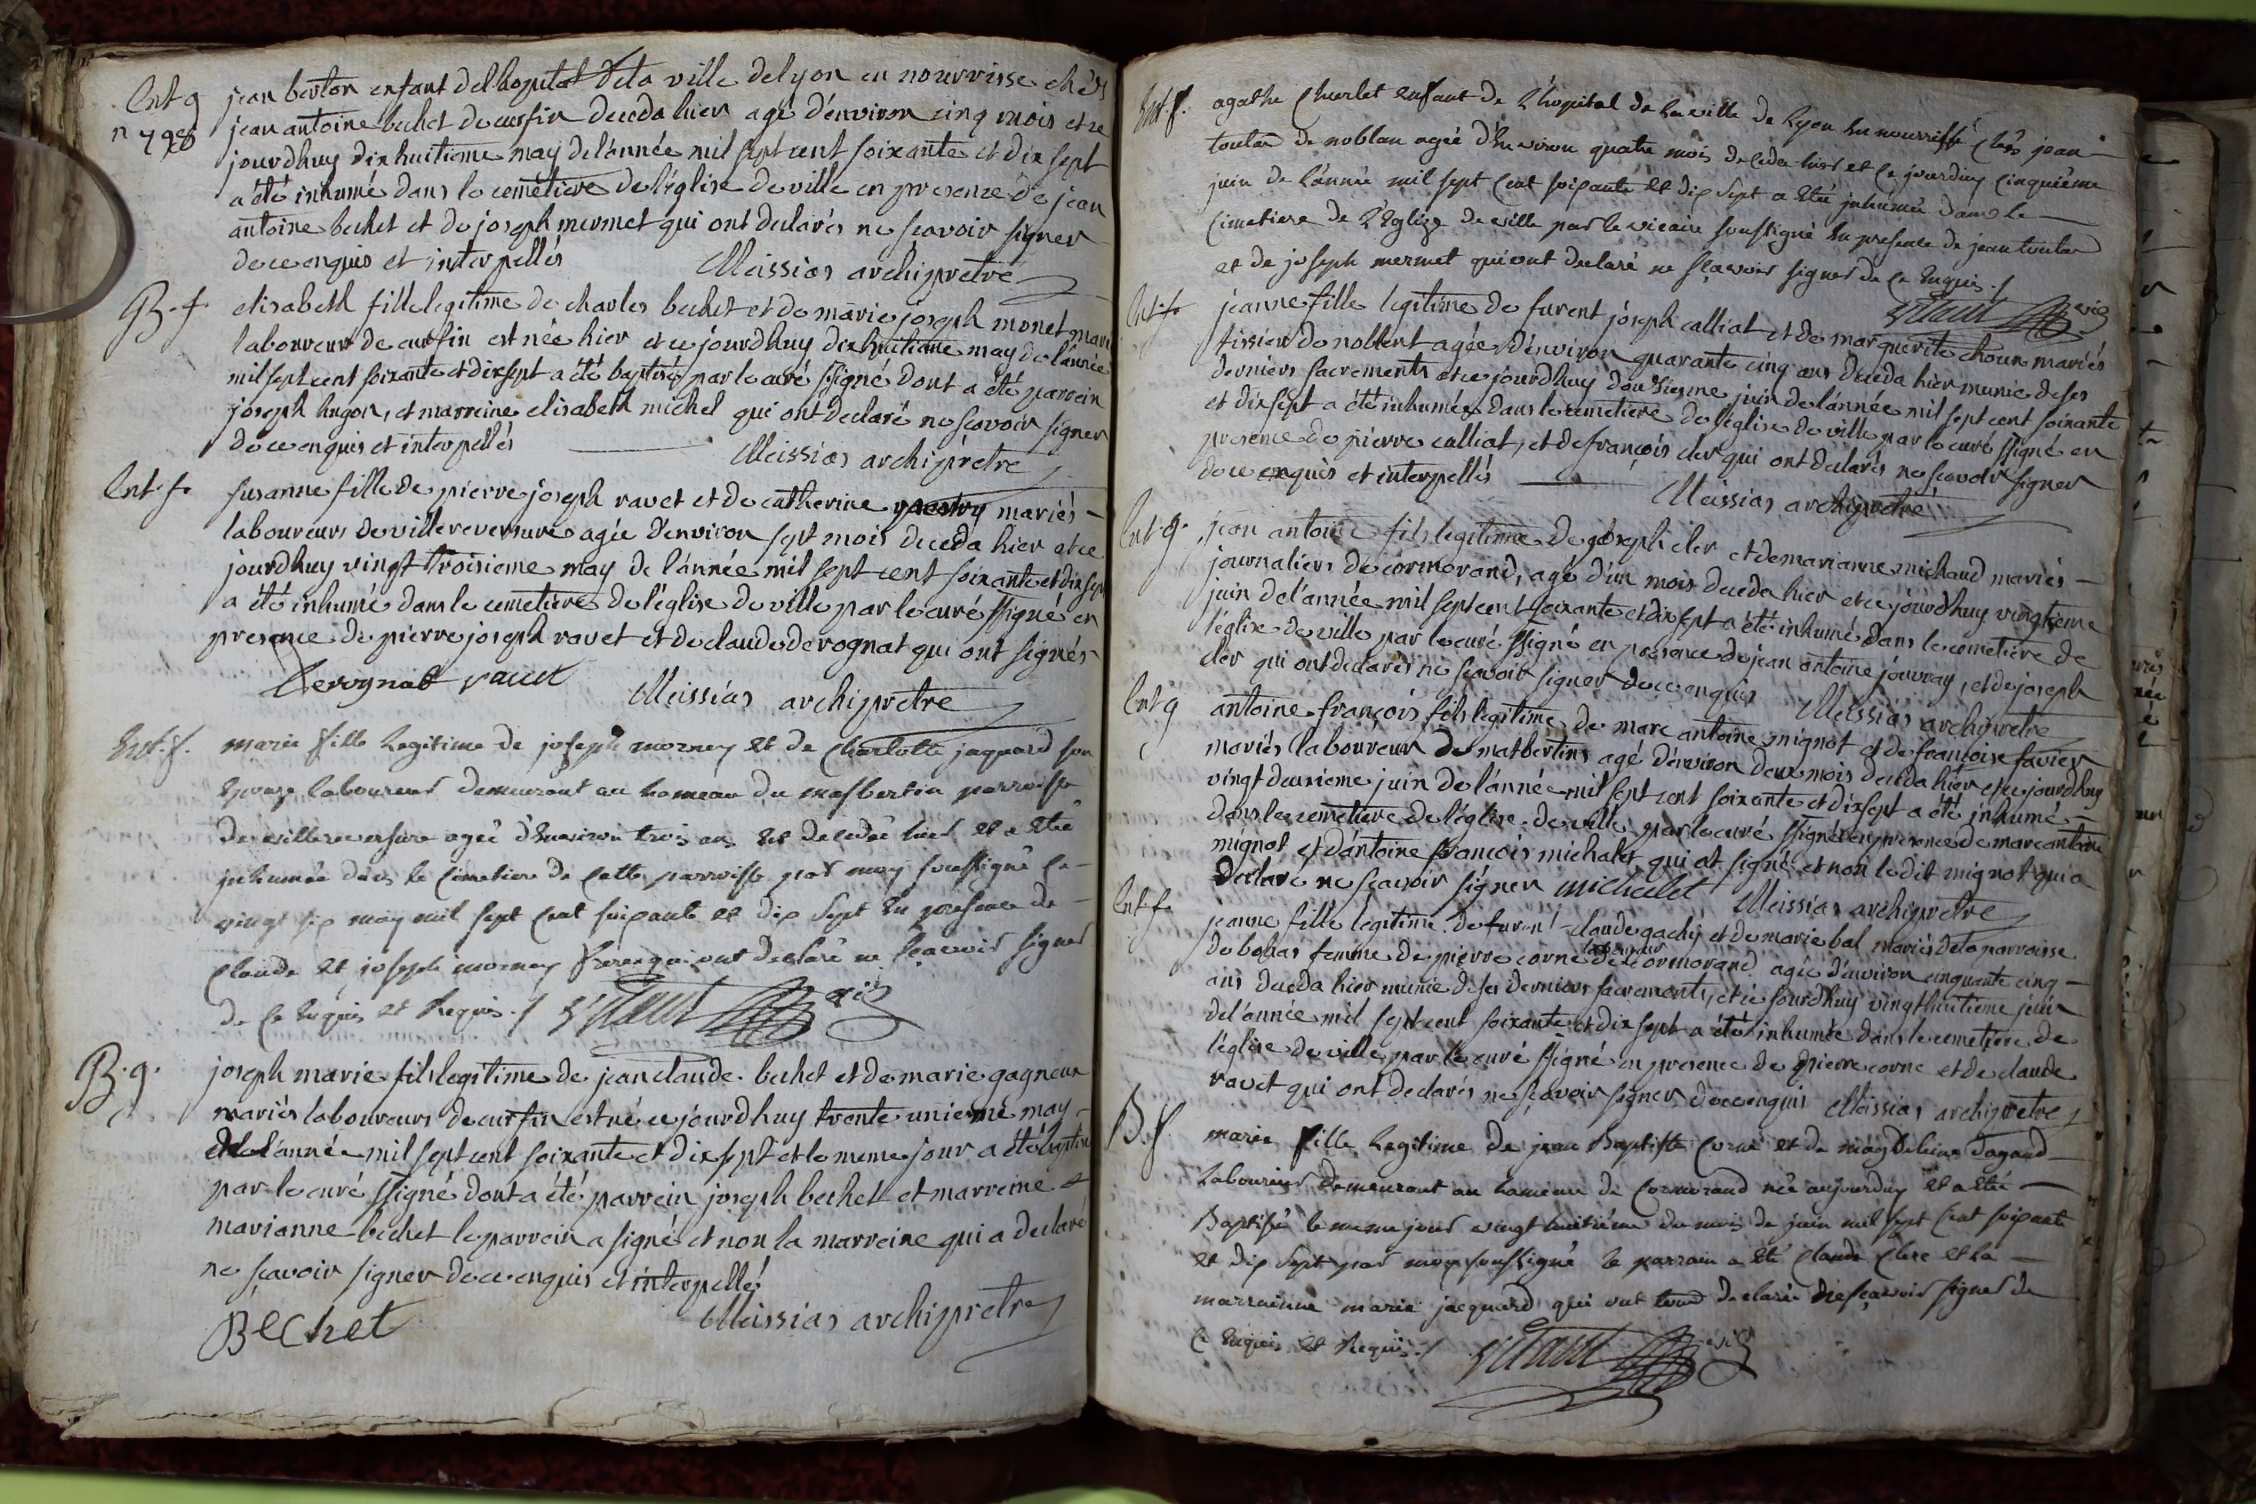 Ent g jean berton enfant delhopital dela ville delyon en nourrisse chés
n 798 jean antoine bechet de cursin deceda hier agé d'environ cinq mois et ce
jourdhuy dix huitieme may de l'année mil sept cent soixante et dix sept
a été inhumé dans le cemetiere de l'église de ville en presence de jean
antoine bechet et de joseph mermet qui ont declarés ne scavoir signer
de ce enquis et interpellés Meissias archipretre
B. f. elisabeth fille legitime de charles bechet et de marie joseph monet mari
laboureur de cursin est née hier et ce jourdhuy dix huitieme may de l'année
mil sept cent soixante et dix sept a été baptisé par le curé ssigné dont a été parrein
joseph hugon, et marreine elisabeth michel qui ont declaré ne scavoir signer
de ce enquis et interpellés Meissias archipretre
Ent. f. susanne fille de pierre joseph ravet et de catherine mariés
laboureurs de villereversure agée d'environ sept mois deceda hier et ce
jourdhuy vingt troisieme may de l'année mil sept cent soixante et dix sept
a été inhumé dans le cemetiere de l'église de ville par le curé ssigné en
presence de pierre joseph ravet et de claude derognat qui ont signés
Derognat ravet Meissias archipretre
Ent. f. marie fille legitime de joseph morney et de charlotte jaquard son
epouze laboureur demeurant au hameau du masbertin parroisse
de villereversure ageé d'environ trois ans est decedeé hier et a été
inhumée dans le cimetiere de cette parroisse par moy soussigné ce
vingt six may mil sept cent soixante et dix sept en presence de
claude et joseph morney freres qui ont declaré ne scavoir signer
de ce enquis et requis ./ vic
B. g. joseph marie fils legitime de jean claude bechet et de marie gagneur
mariés laboureurs de cursin est né ce jourdhuy trente unieme may
de l'année mil sept cent soixante et dix sept et le meme jour a été baptisé
par le curé ssigné dont a été parrein joseph bechet et marreine
marianne bechet le parrein a signé et non la marreine qui a declaré
ne scavoir signer de ce enquis et interpellé
BeChet Meissias archipretre
Ent. f. agathe Charlet enfant de l'hopital de la ville de Lyon en nourrisse chés jean
toulan de noblan ageé d'environ quatre mois deceda hier et ce jourduy cinquiéme
juin de l'année mil sept cent soixante et dix sept a été inhumée dans le
cimetiere de l'Eglize de ville par le vicaire soussigné en presence de jean toulan
et de joseph mermet qui ont declaré ne sçavoir signer de ce enquis ./
vic
Ent. f. jeanne fille legitime de furent joseph calliat et de marguerite mariés
tissier de noblent agée d'environ quarante cinq ans deceda hier munie de ses
derniers sacrements et ce jourdhuy douzieme juin de l'année mil sept cent soixante
et dix sept a été inhumée dans le cemetiere de l'église de ville par le curé ssigné en
presence de pierre calliat, et de françois cler qui ont declarés ne scavoir signer
de ce enquis et interpellés Meissias archipretre
Ent. g. jean antoine fils legitime de joseph cler et de marianne michaud mariés
journaliers de cormorand, agé d'un mois deceda hier et ce jourdhuy vingtieme
juin de l'année mil sept cent soixante et dix sept a été inhumé dans le cemetiere de
l'église de ville par le curé ssigné en presence de jean antoine jouvray, et de joseph
cler qui ont declarés ne scavoir signer de ce enquis Meissias archipretre
Ent g antoine françois fils legitime de marc antoine mignot et de françoise favier
mariés laboureur de masbertins agé d'environ deux mois deceda hier et ce jourdhuy
vingt deuxieme juin de l'année mil sept cent soixante et dix sept a été inhumé
dans le cemetiere de l'église de ville par le curé ssigné en presence de marc antoine
mignot et d'antoine françois michalet qui at signé et non le dit mignot qui a
declaré ne scavoir signer michelet Meissias archipretre
Ent. f. jeanne fille legitime de furent claude gachy et de marie bal mariés de la parroisse
de bohas femme de pierre corne laboureur de cormorand agée d'environ cinquante cinq
ans deceda hier munie de ses derniers sacrements, et ce jourdhuy vingt huitieme juin
de l'année mil sept cent soixante et dix sept a été inhumée dans le cemetiere de
l'église de ville par le curé ssigné en presence de pierre corne et de claude
ravet qui ont declarés ne scavoir signer de ce enquis Meissias archipretre
B. f. marie fille legitime de jean Baptiste Corne et de magdeleine Dagand
Laboureur demeurant au hameau de Cormorand neé aujourduy et a été
Baptisé le meme jour vingt huitiéme du mois de juin mil sept cent soixante
et dix sept par moy soussigné le parrain a été claude clerc et la
marrainne marie jacquard qui ont declaré ne sçavoir signer de
ce enquis et requis ./ vic